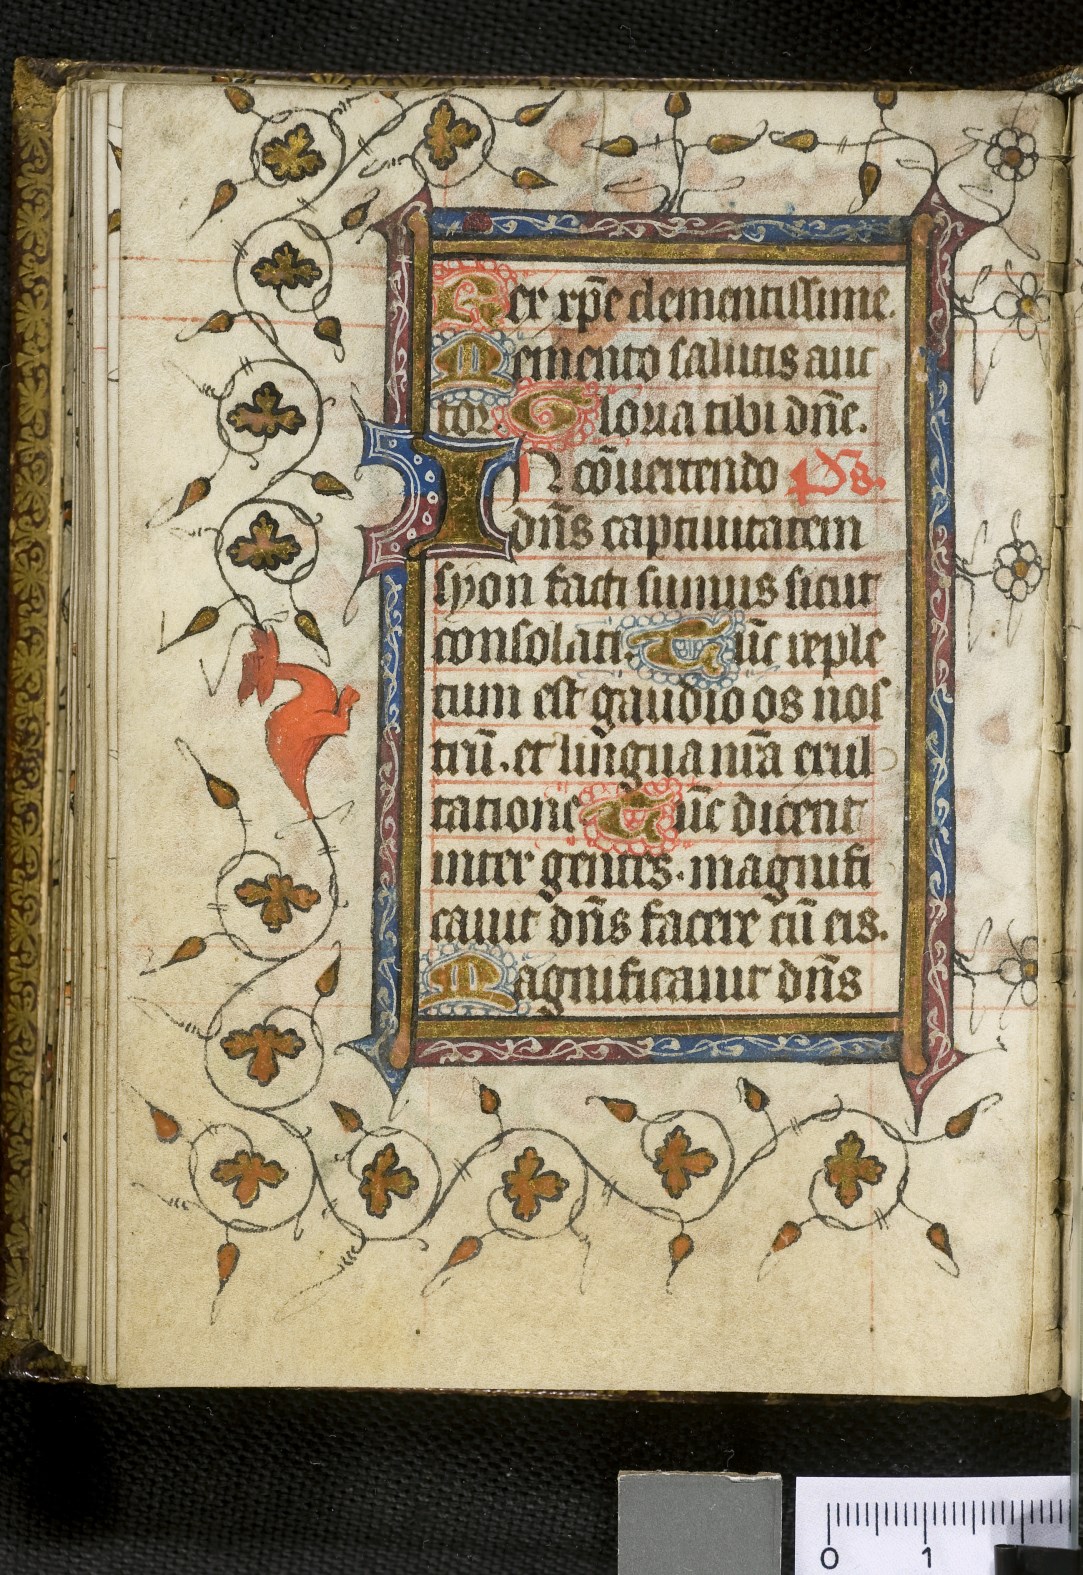 Rex xp̄e clementissime.
Memento salutis auc
tor. Gloria tibi dn̄e.
IN cōuertendo ps.
dn̄s captiuitatem
syon facti sumus sicut
consolati. Tūc reple
tum est gaudio os nos
trū. et lingua nr̄a exul
tatione Tūc dicent
inter gentes. magnifi
cauit dn̄s facere cū eis.
Magnificauit dn̄s
0 1